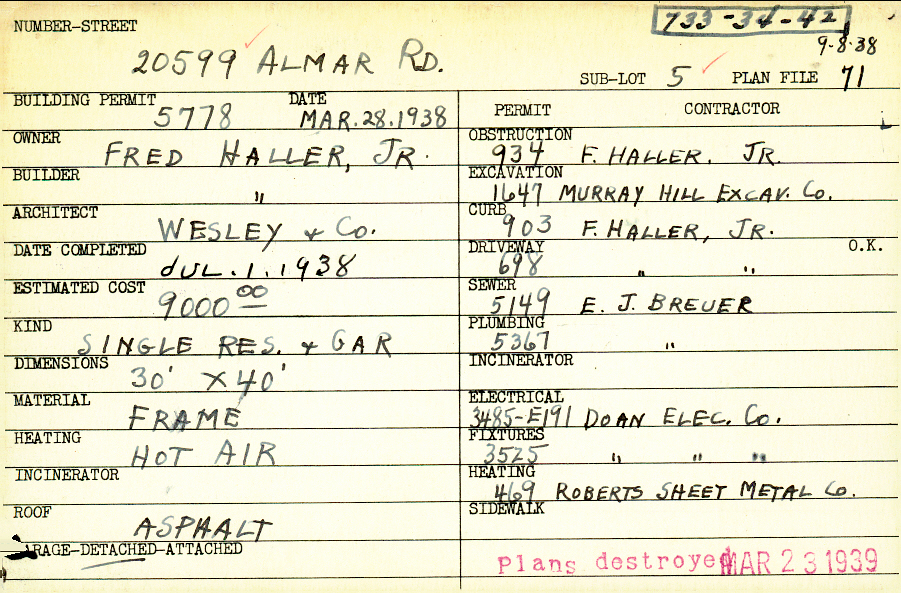 733-34-42
NUMBER-STREET
9-8-38
20599 ALMAR RD.
SUB-LOT 5 PLAN FILE 71
BUILDING PERMIT 5778 DATE MAR.28.1938
OWNER FRED HALLER, JR.
BUILDER "
ARCHITECT WESLEY & Co.
DATE COMPLETED JUL.1.1938
ESTIMATED COST 9000 00
KIND SINGLE RES. & GAR
DIMENSIONS 30' X 40'
MATERIAL FRAME
HEATING HOT AIR
INCINERATOR
ROOF ASPHALT
ARAGE-DETACHED-ATTACHED
PERMIT CONTRACTOR
OBSTRUCTION 934 F. HALLER. JR.
EXCAVATION 1647 MURRAY HILL EXCAV. Co.
CURB 903 F. HALLER, JR.
DRIVEWAY 698 " " O.K.
SEWER 5149 E. J. BREUER
PLUMBING 5367 "
INCINERATOR
ELECTRICAL 3485-E191 DOAN ELEC. Co.
FIXTURES 3525 " " "
HEATING 469 ROBERTS SHEET METAL Co.
SIDEWALK
Plans destroyed MAR 23 1939